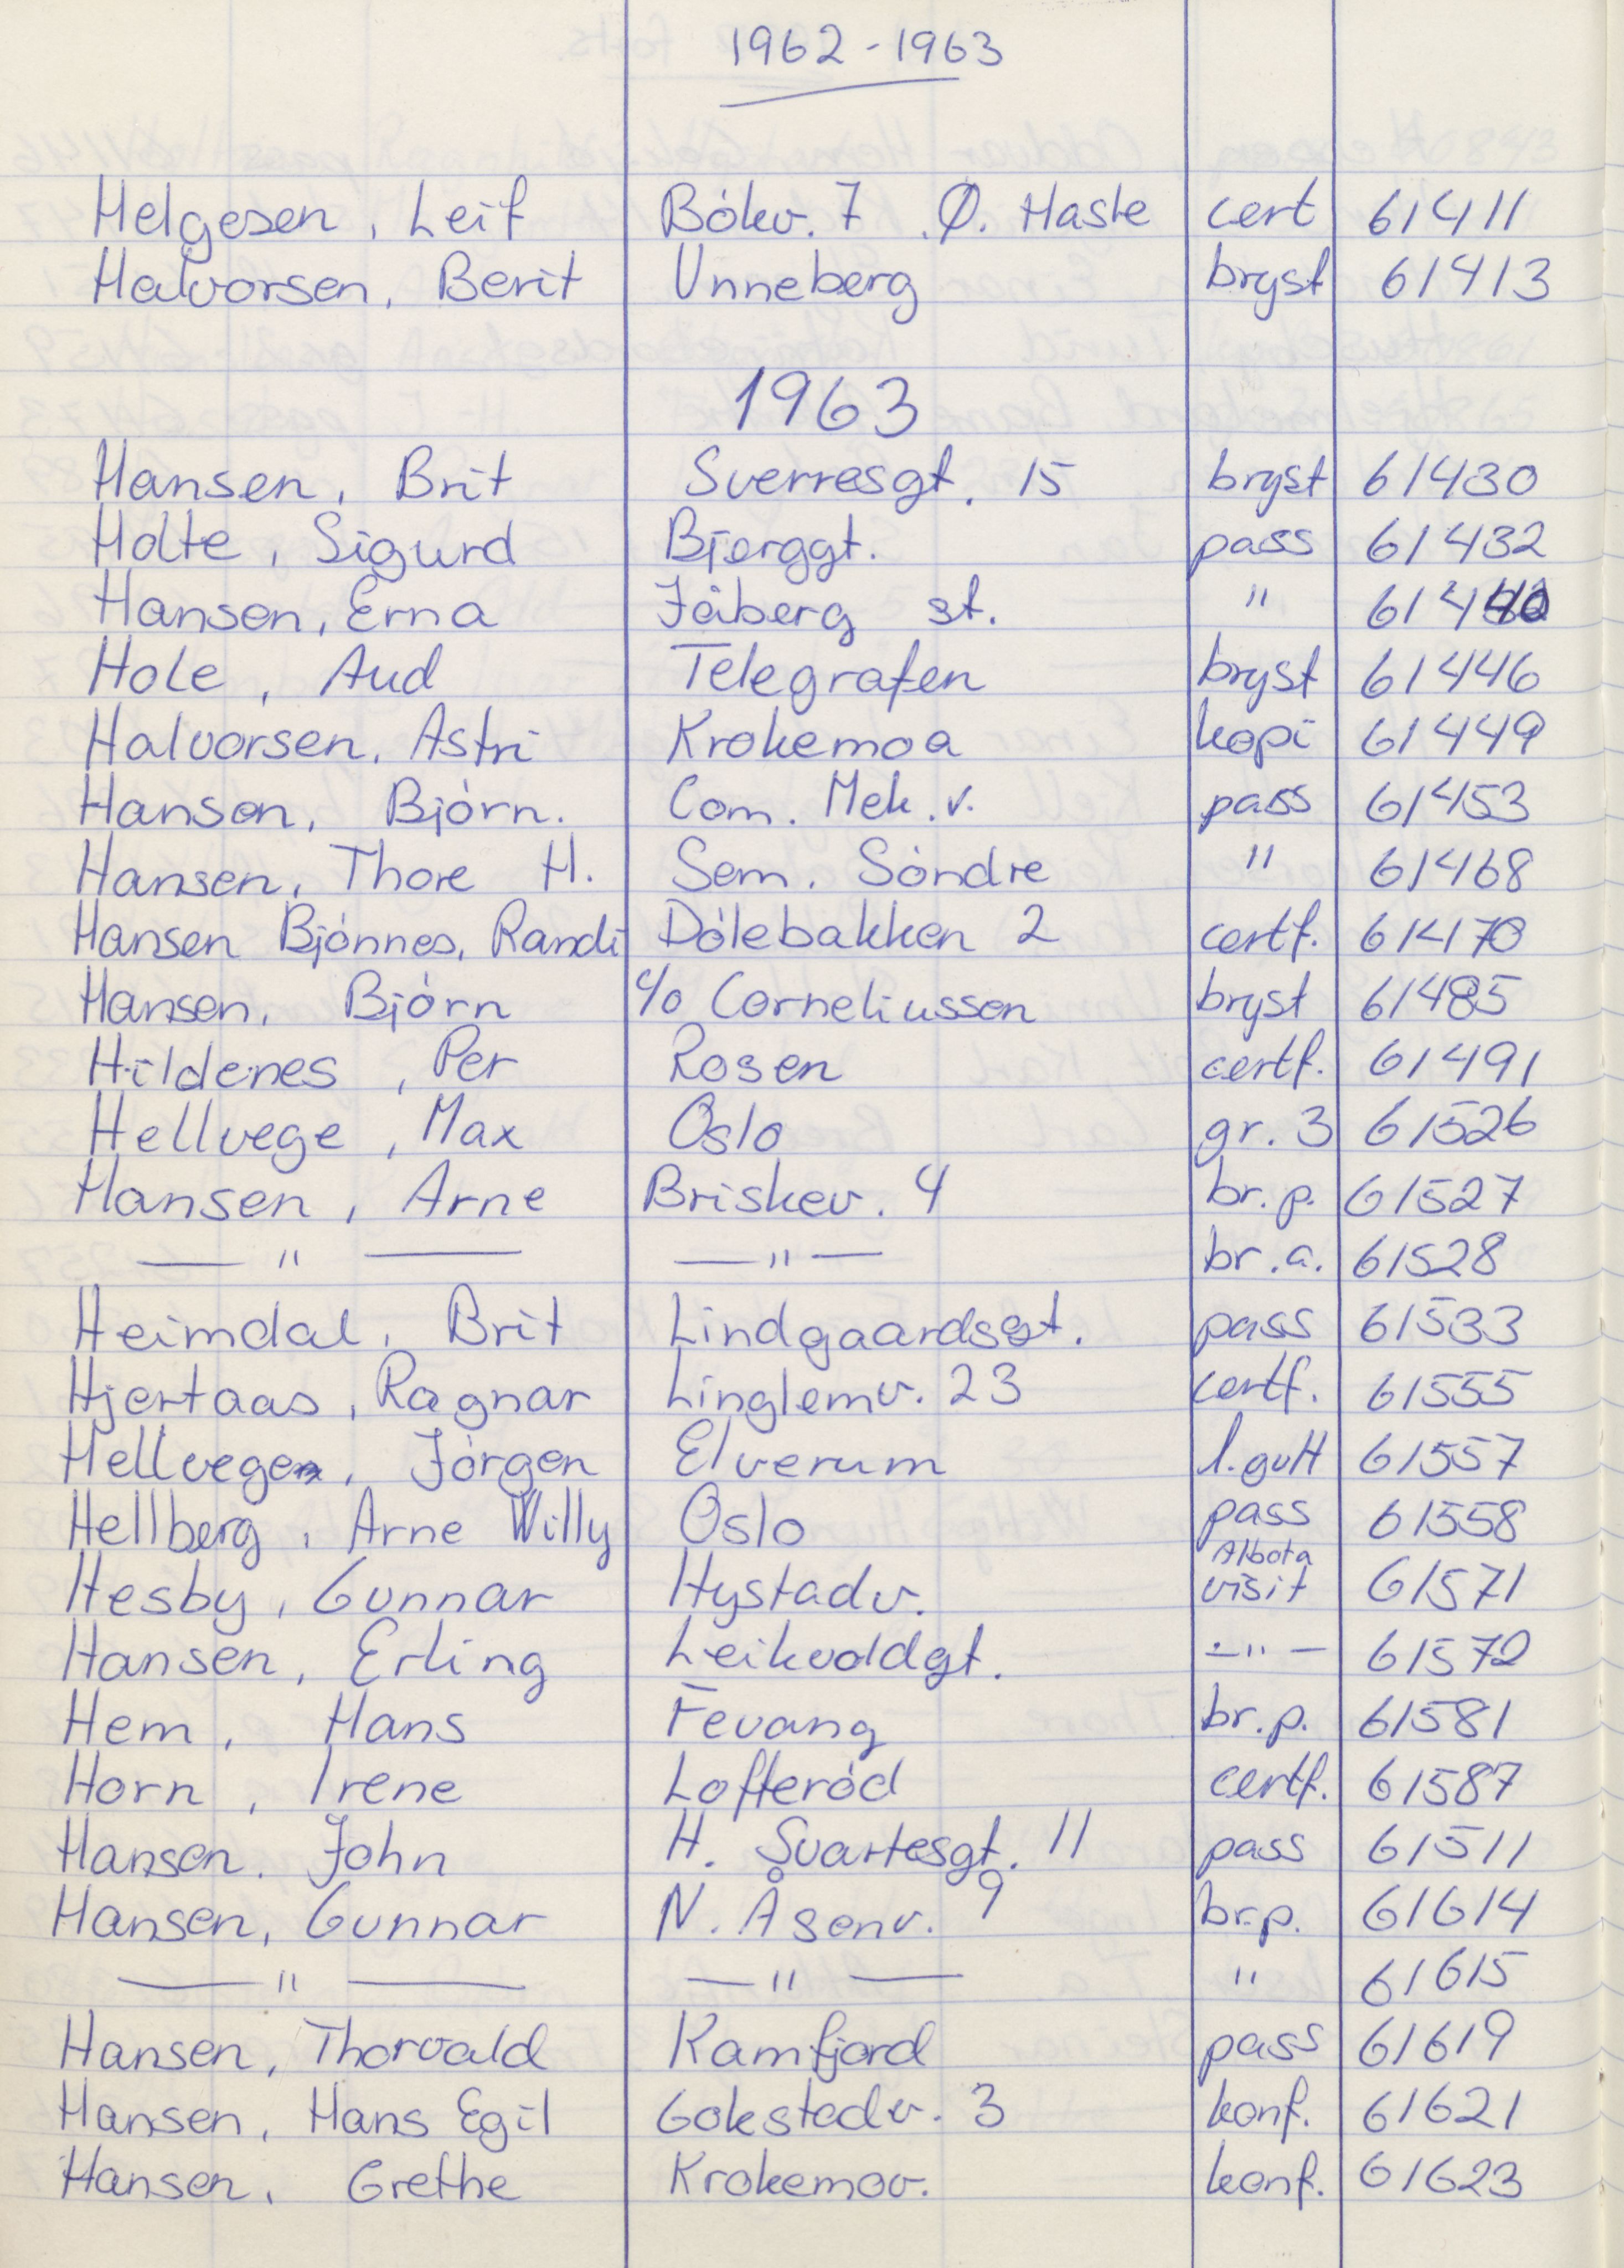 1962 - 1963
Helgesen, Leif Bökv. 7 Ø. Hasle cert 61411
Halvorsen, Berit Unneberg bryst 61413
1963
Hansen, Brit Sverresgt. 15 bryst 61430
Holte, Sigurd Bjerggt. pass 61432
Hansen, Erna Jåberg st. " 61440
Hole, Aud Telegrafen bryst 61446
Halvorsen, Astri Krokemoa kopi 61449
Hansen, Björn. Com. Mek. v. pass 61453
Hansen, Thore H. Sem. Söndre " 61468
Hansen Bjönnes, Randi Dölebakken 2 certf. 61470
Hansen, Björn c/o Corneliussen bryst 61485
Hildenes, Per Rosen certf. 61491
Hellvege, Max Oslo gr. 3 61526
Hansen, Arne Briskev. 4 br. p. 61527
— " — — " — br. a. 61528
Heimdal, Brit Lindgaardsgt. pass 61533
Hjertaas, Ragnar Linglemv. 23 certf. 61555
Hellvege, Jörgen Elverum l. gutt 61557
Hellberg, Arne Willy Oslo pass 61558
Hesby, Gunnar Hystadv. Albota visit 61571
Hansen, Erling Leikvoldgt. — " — 61572
Hem, Hans Fevang br. p. 61581
Horn, Irene Lofteröd certf. 61587
Hansen. John H. Svartesgt. 11 pass 61511
Hansen, Gunnar N. Åsenv. 9 br. p. 61614
— " — — " — " 61615
Hansen, Thorvald Kamfjord pass 61619
Hansen, Hans Egil Gokstadv. 3 konf. 61621
Hansen, Grethe Krokemov. konf. 61623